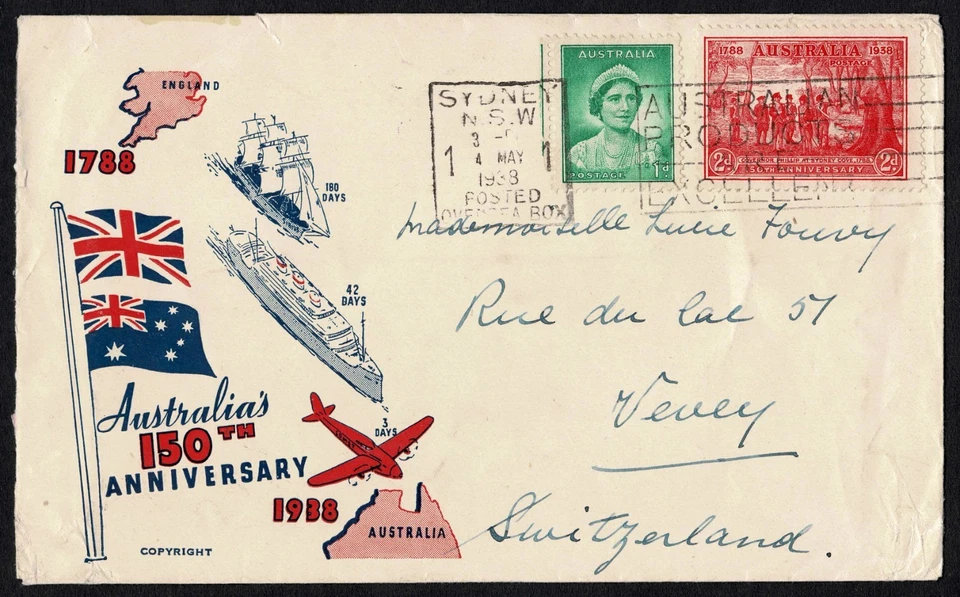 ENGLAND
1788
180
DAYS
42
DAYS
3
DAYS
Australia's
150TH
ANNIVERSARY
1938
AUSTRALIA
COPYRIGHT
SYDNEY
N.S.W
3
1 4 MAY 1
1938
POSTED
OVERSEA BOX
AUSTRALIA
POSTAGE 1d
AUSTRALIAN
PRODUCTS
EXCELLENT
1788 AUSTRALIA 1938
POSTAGE
2d GOVERNOR PHILLIP AT SYDNEY COVE, 1788 2d
150TH ANNIVERSARY
Mademoiselle Lucie
Rue du Lac 51
Vevey
Switzerland.